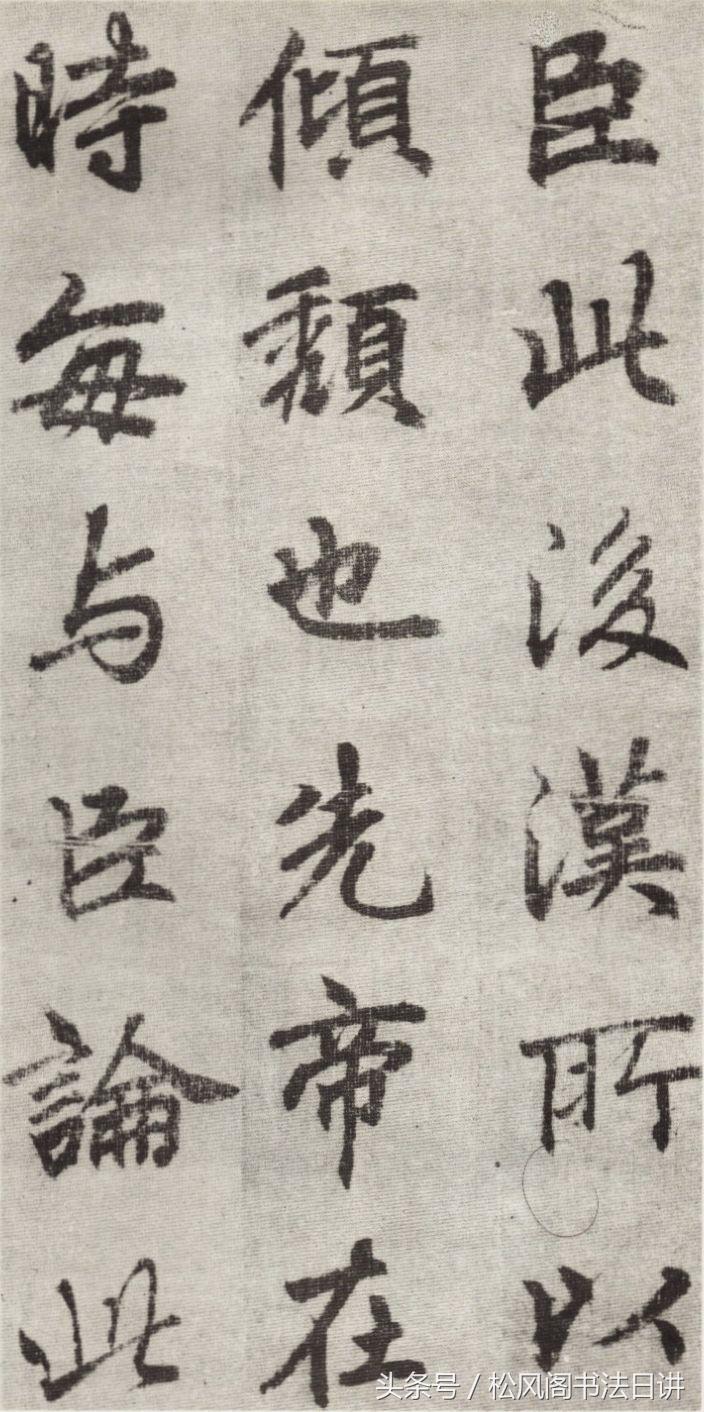 臣此後漢所以
傾頹也先帝在
時每与臣論此
头条号 / 松风阁书法日讲